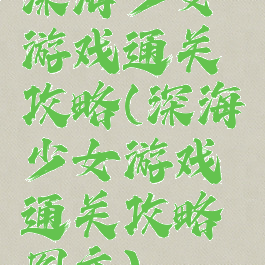 深海少女
游戏通关
攻略(深海
少女游戏
通关攻略
图文)